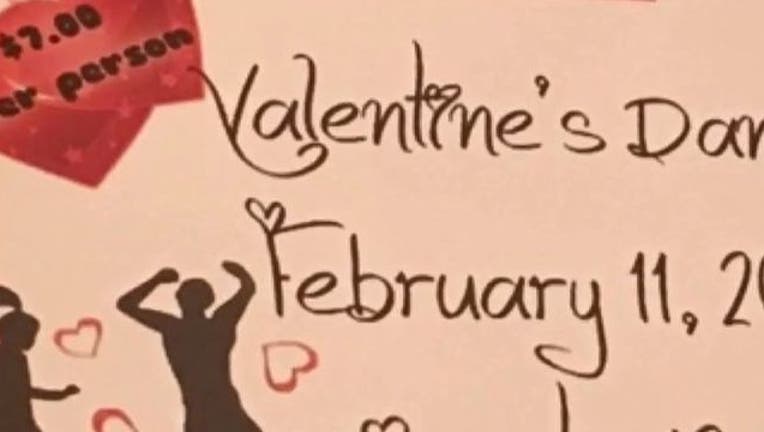 $7.00
er person
Valentine's Dan
February 11, 20